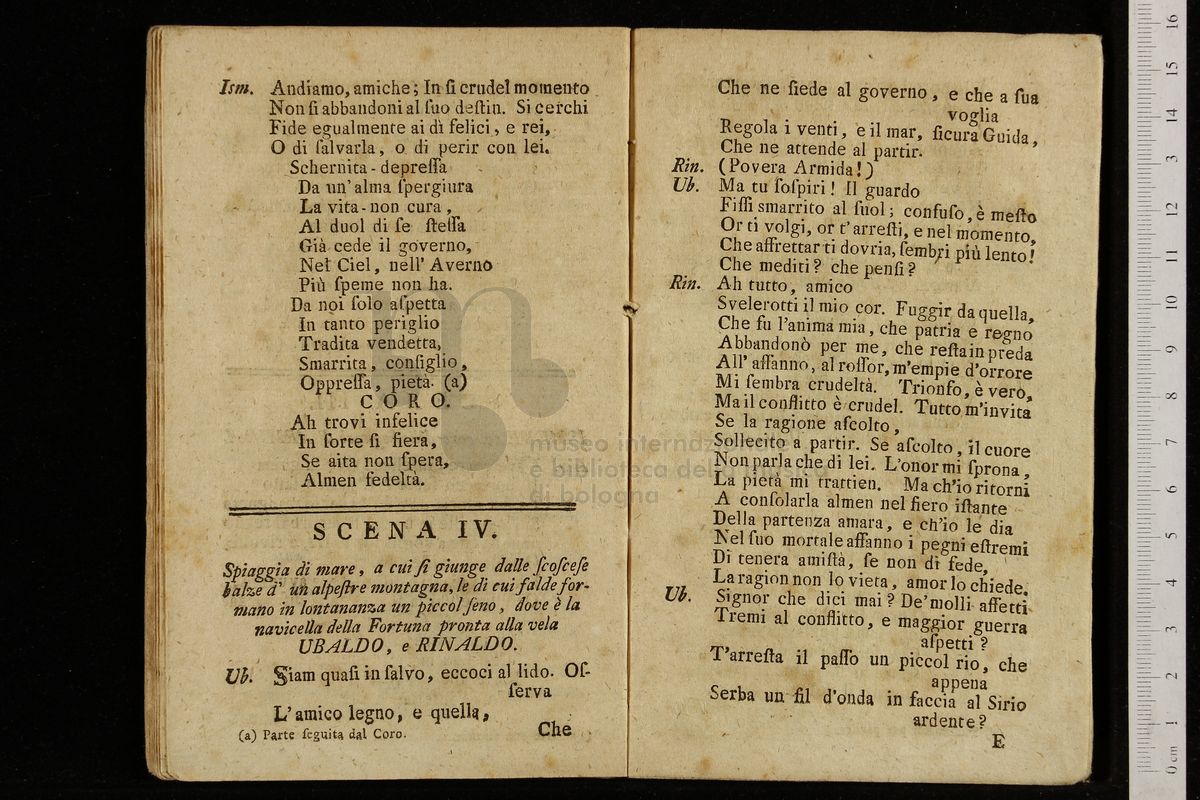 Ism. Andiamo, amiche; In ſi crudel momento
Non ſi abbandoni al ſuo deſtin. Si cerchi
Fide egualmente ai dì felici, e rei,
O di ſalvarla, o di perir con lei.
Schernita - depreſſa
Da un' alma ſpergiura
La vita - non cura,
Al duol di ſe ſteſſa
Già cede il governo,
Nel Ciel, nell' Averno
Più ſpeme non ha.
Da noi ſolo aſpetta
In tanto periglio
Tradita vendetta,
Smarrita, conſiglio,
Oppreſſa, pietà. (a)
CORO.
Ah trovi infelice
In ſorte ſi fiera,
Se aita non ſpera,
Almen fedeltà.
SCENA IV.
Spiaggia di mare, a cui ſi giunge dalle ſcoſceſe
balze d' un alpeſtre montagna, le di cui falde for-
mano in lontananza un piccol ſeno, dove è la
navicella della Fortuna pronta alla vela
UBALDO, e RINALDO.
Ub. Siam quaſi in ſalvo, eccoci al lido. Oſ-
ſerva
L' amico legno, e quella,
(a) Parte ſeguita dal Coro.
Che
Che ne ſiede al governo, e che a ſua
voglia
Regola i venti, e il mar, ſicura Guida,
Che ne attende al partir.
Rin. (Povera Armida!)
Ub. Ma tu ſoſpiri! Il guardo
Fiſſi smarrito al ſuol; confuſo, è meſto
Or ti volgi, or t' arreſti, e nel momento,
Che affrettar ti dovria, ſembri più lento!
Che mediti? che penſi?
Rin. Ah tutto, amico
Svelerotti il mio cor. Fuggir da quella,
Che fu l'anima mia, che patria e regno
Abbandonò per me, che reſta in preda
All' affanno, al roſſor, m'empie d'orrore
Mi ſembra crudeltà. Trionfo, è vero,
Ma il conflitto è crudel. Tutto m'invita
Se la ragione aſcolto,
Sollecito a partir. Se aſcolto, il cuore
Non parla che di lei. L'onor mi ſprona,
La pietà mi trattien. Ma ch'io ritorni
A conſolarla almen nel fiero iſtante
Della partenza amara, e ch'io le dia
Nel ſuo mortale affanno i pegni eſtremi
Di tenera amiſtà, ſe non di fede,
La ragion non lo vieta, amor lo chiede.
Ub. Signor che dici mai? De' molli affetti
Tremi al conflitto, e maggior guerra
aſpetti?
T'arreſta il paſſo un piccol rio, che
appena
Serba un fil d'onda in faccia al Sirio
ardente?
E
museo internazionale
e biblioteca della musica
di bologna
0 cm 1 2 3 4 5 6 7 8 9 10 11 12 13 14 15 16